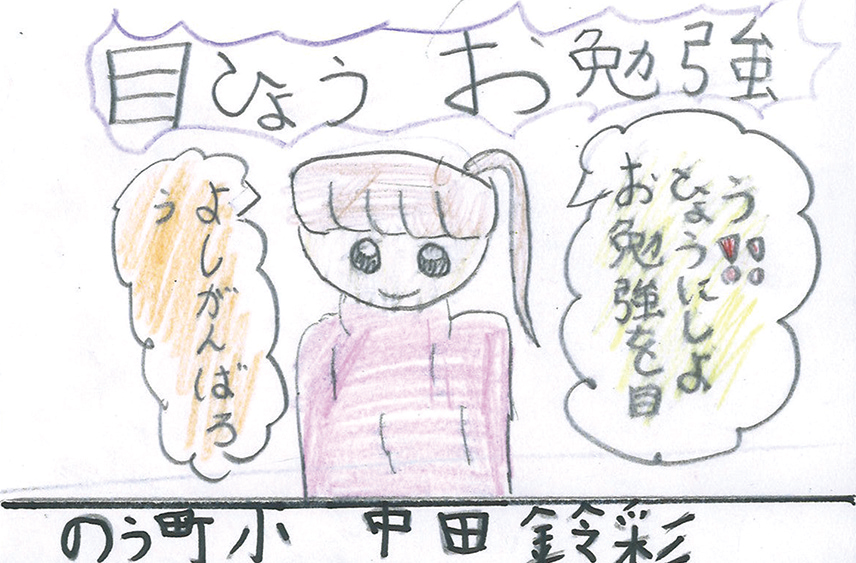 目ひょう お勉強
お勉強を目
ひょうにしよ
う!!
よしがんばろ
う
のう町小 中田 鈴彩